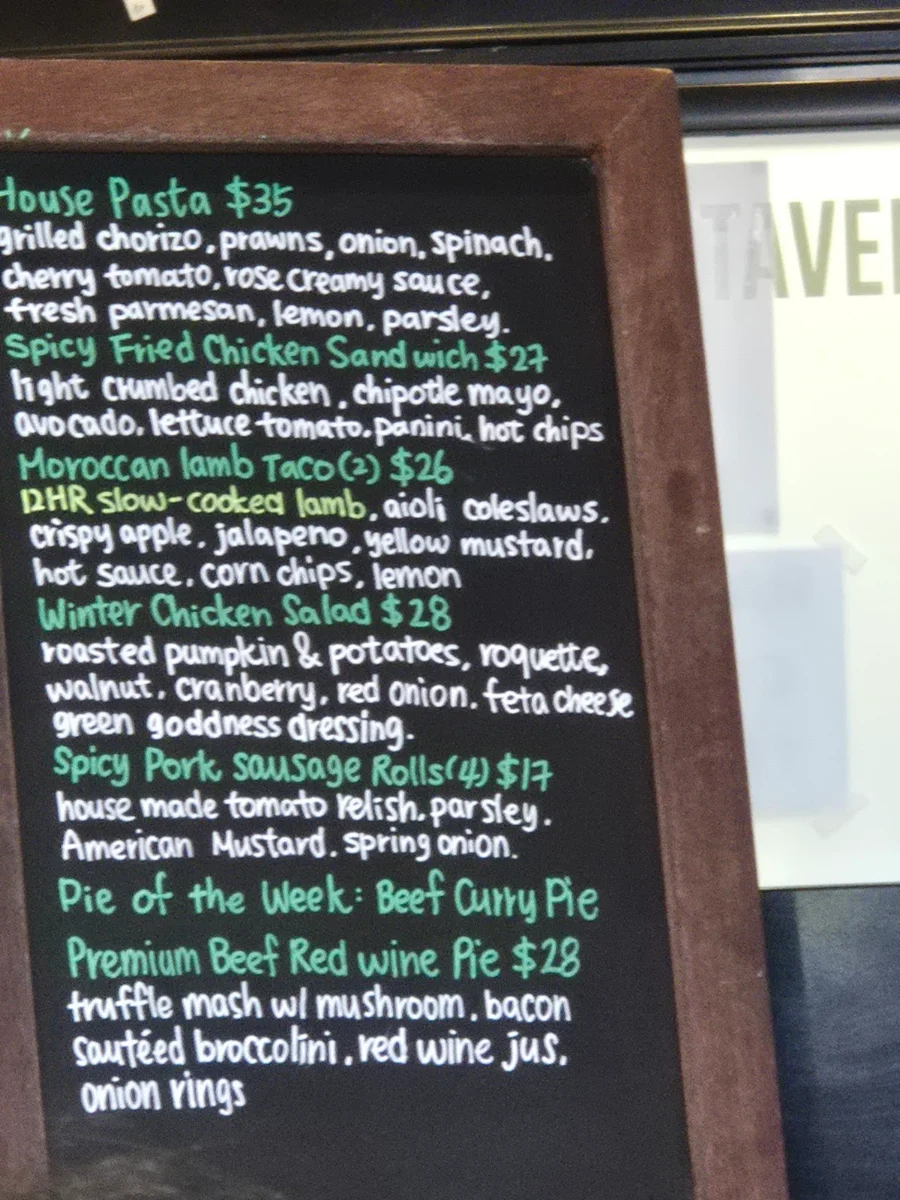 House Pasta $35
grilled chorizo, prawns, onion, spinach.
cherry tomato, rose creamy sauce,
fresh parmesan, lemon, parsley.
Spicy Fried Chicken Sandwich $27
light crumbed chicken, chipotle mayo,
avocado, lettuce tomato, panini, hot chips
Moroccan lamb Taco(2) $26
12HR slow-cooked lamb, aioli coleslaws.
crispy apple, jalapeno, yellow mustard,
hot sauce, corn chips, lemon
Winter Chicken Salad $28
roasted pumpkin & potatoes, roquette,
walnut, cranberry, red onion, feta cheese
green goddness dressing.
Spicy Pork Sausage Rolls(4) $17
house made tomato relish, parsley.
American Mustard. Spring onion.
Pie of the Week: Beef Curry Pie
Premium Beef Red wine Pie $28
truffle mash w/ mushroom, bacon
sautéed broccolini, red wine jus,
onion rings
TAVE